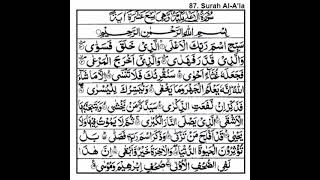 87. Surah Al-A'la
بِسْمِ اللّٰهِ الرَّحْمٰنِ الرَّحِيْمِ
سَبِّحِ اسْمَ رَبِّكَ الْاَعْلَى الَّذِيْ خَلَقَ فَسَوّٰى
وَالَّذِيْ قَدَّرَ فَهَدٰى وَالَّذِيْٓ اَخْرَجَ الْمَرْعٰى
فَجَعَلَهٗ غُثَآءً اَحْوٰى سَنُقْرِئُكَ فَلَا تَنْسٰٓى اِلَّا مَا شَآءَ
اللّٰهُ اِنَّهٗ يَعْلَمُ الْجَهْرَ وَمَا يَخْفٰى وَنُيَسِّرُكَ لِلْيُسْرٰى
فَذَكِّرْ اِنْ نَّفَعَتِ الذِّكْرٰى سَيَذَّكَّرُ مَنْ يَّخْشٰى وَيَتَجَنَّبُهَا
الْاَشْقَى الَّذِيْ يَصْلَى النَّارَ الْكُبْرٰى ثُمَّ لَا يَمُوْتُ فِيْهَا وَلَا
يَحْيٰى قَدْ اَفْلَحَ مَنْ تَزَكّٰى وَذَكَرَ اسْمَ رَبِّهٖ فَصَلّٰى بَلْ
تُؤْثِرُوْنَ الْحَيٰوةَ الدُّنْيَا وَالْاٰخِرَةُ خَيْرٌ وَّاَبْقٰى اِنَّ هٰذَا
لَفِي الصُّحُفِ الْاُوْلٰى صُحُفِ اِبْرٰهِيْمَ وَمُوْسٰى